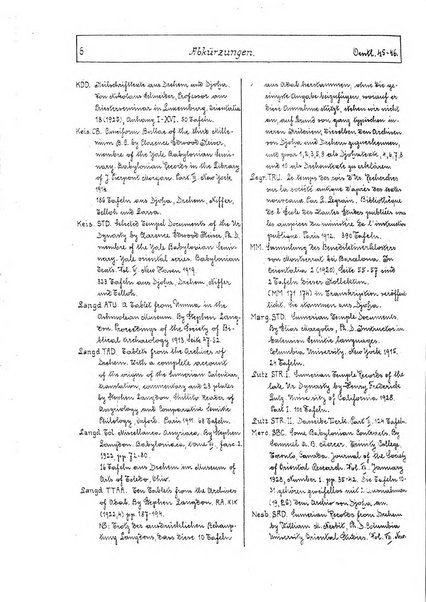 6 Abkürzungen. Orientl. 45-46.
KDD. Keilschrifttexte aus Drehem und Djoha.
Von Nikolaus Schneider, Professor am
Priesterseminar in Luxemburg. Orientalia
18 (1925), Anhang I-XVI. 50 Tafeln.
Keis. CB. Cuneiform Bullae of the third mille-
nium B.C. by Clarence Elwood Keiser,
membre of the Yale Babylonian Semi-
nary. Babylonian Records in the Library
of J. Pierpont Morgan. Part III. New York,
1914.
186 Tafeln aus Djoha, Drehem, Niffer,
Telloh und Larsa.
Keis. STD. Selected Temple Documents of the Ur
Dynasty by Clarence Elwood Keiser, Ph. D.
membre of the Yale Babylonian Semi-
nary. Yale oriental series. Babylonian
texts. Vol. IV. New Haven 1919.
323 Tafeln aus Djoha, Drehem, Niffer
und Telloh.
Langd. ATU. A Tablet from Umma, in the
Ashmolean Museum. By Stephen Lang-
don. Proceedings of the Society of Bi-
blical Archaeology 1913, Seite 47-52.
Langd. TAD. Tablets from the Archives of
Drehem. With a complete account
of the origin of the Sumerian Calendar,
translation, commentary and 23 plates
by Stephen Langdon, Shillito Reader of
Assyriology and Comparative Semitic
Philology, Oxford. Paris 1911. 68 Tafeln.
Langd. Tol. Miscellanea Assyriaca. By Stephen
Langdon. Babyloniaca, tome VII, fasc. 2.
1922. pp. 72-80.
16 Tafeln aus Drehem im Museum of
Arts of Toledo, Ohio.
Langd. TTAA. Ten Tablets from the Archives
of Adab. By Stephen Langdon. RA. XIX
(1922, 4) pp. 187-194.
NB: Trotz der ausdrücklichen Behaup-
tung Langdons, dass diese 10 Tafeln
aus Adab herstammen, ohne die ge-
ringste Angabe beizufügen worauf er
diese Annahme stützt, stehen wir nicht
an, auf Grund von ganz typischen in-
neren Kriterien, dieselben den Archiven
von Djoha und Drehem zuzuerkennen,
und zwar 1, 2, 3, 5, 9 als Djohatexte, 4, 6, 7, 8
und 10 als Drehemtexte zu erklären.
Legr. TRU. Le temps des rois d'Ur. Recherches
sur la société antique d'après des textes
nouveaux. Par L. Legrain. Bibliothèque
de l'École des Hautes Études publiée sous
les auspices du ministère de l'instruction
publique. Paris 1912. 390 Tafeln.
MM. Sammlung des Benediktinerklosters
von Montserrat bei Barcelona. In
Orientalia 2 (1920), Seite 55-57 sind
2 Tafeln dieser Kollektion,
(MM 171, 176) in Transcription veröffent-
licht. Sie stammen aus Djoha.
Marg. STD. Sumerian Temple Documents.
By Elias Margolis, Ph. D. Instructor in
extension Semitic Languages.
Columbia University. New York 1915.
24 Tafeln.
Lutz STR. I. Sumerian Temple Records of the
late Ur Dynasty by Henry Frederick
Lutz. University of California 1928.
Part I. 100 Tafeln.
Lutz STR. II. Dasselbe Werk. Part II. 124 Tafeln.
Merc. SBC. Some Babylonian Contracts. By
Samuel A. B. Mercer. Trinity College,
Toronto, Canada. Journal of the Society
of Oriental Research. Vol. XII. January
1928, Number 1. pp. 35-42. Die Tafeln 10-
31 gehören zweifellos mit Ausnahmen
(19, 26) dem Archiv von Djoha an.
Nesb. SRD. Sumerian Records from Drehem
by William M. Nesbit, Ph. D. Columbia
University Oriental Studies. Vol. VIII. New